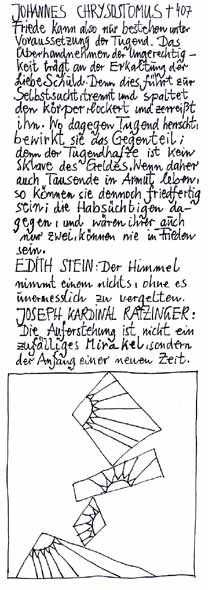 JOHANNES CHRYSOSTOMUS † 407
Friede kann also nur bestehen unter
Voraussetzung der Tugend. Das
Überhandnehmen der Ungerechtig-
keit trägt an der Erkaltung der
Liebe Schuld. Denn dies führt zur
Selbstsucht, trennt und spaltet
den Körper, lockert und zerreißt
ihn. Wo dagegen Tugend herrscht,
bewirkt sie das Gegenteil;
denn der Tugendhafte ist kein
Sklave des Geldes. Wenn daher
auch Tausende in Armut leben,
so können sie dennoch friedfertig
sein; die Habsüchtigen da-
gegen, und wären ihrer auch
nur zwei, können nie in Frieden
sein.
EDITH STEIN: Der Himmel
nimmt einem nichts, ohne es
unermesslich zu vergelten.
JOSEPH KARDINAL RATZINGER:
Die Auferstehung ist nicht ein
zufälliges Mirakel, sondern
der Anfang einer neuen Zeit.